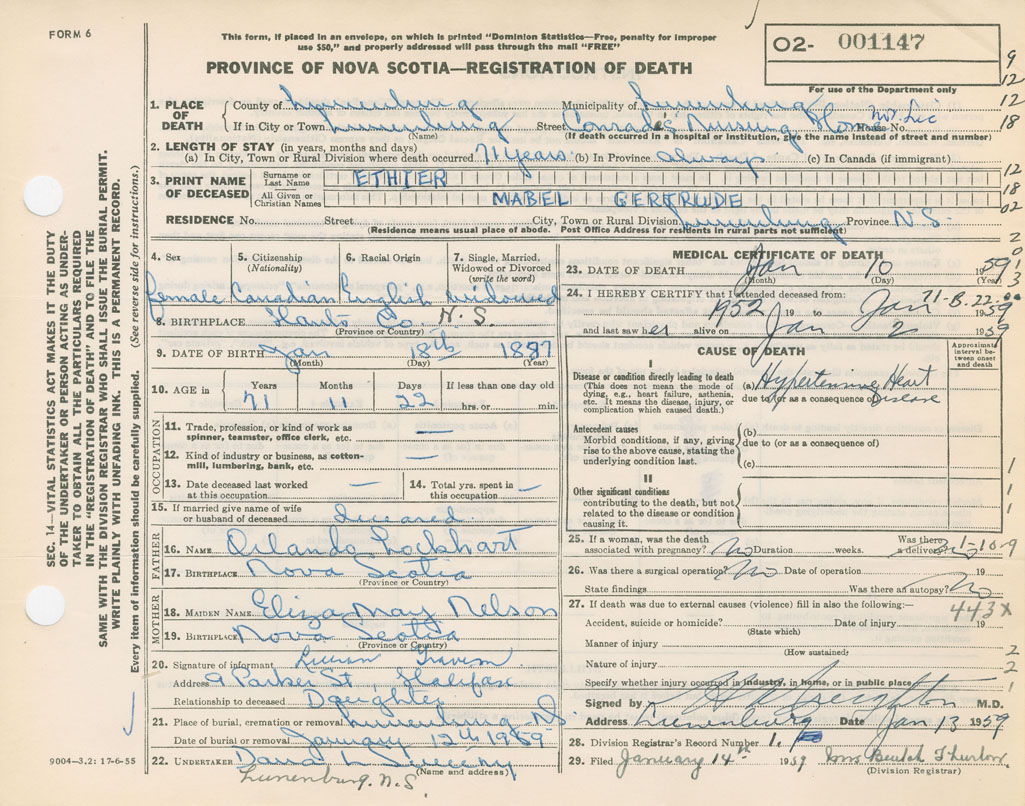 FORM 6
This form, if placed in an envelope, on which is printed "Dominion Statistics—Free, penalty for improper
use $50," and properly addressed will pass through the mail "FREE"
PROVINCE OF NOVA SCOTIA—REGISTRATION OF DEATH
O2- 001147
For use of the Department only
9
12
12
18
12
18
02
2
0
1
3
SEC. 14—VITAL STATISTICS ACT MAKES IT THE DUTY
OF THE UNDERTAKER OR PERSON ACTING AS UNDER-
TAKER TO OBTAIN ALL THE PARTICULARS REQUIRED
IN THE "REGISTRATION OF DEATH" AND TO FILE THE
SAME WITH THE DIVISION REGISTRAR WHO SHALL ISSUE THE BURIAL PERMIT.
WRITE PLAINLY WITH UNFADING INK. THIS IS A PERMANENT RECORD.
Every item of information should be carefully supplied. (See reverse side for instructions.)
1. PLACE OF DEATH
County of Lunenburg Municipality of Lunenburg
If in City or Town Lunenburg Street Conrad's Nursing Home House No.
(Name) (If death occurred in a hospital or institution, give the name instead of street and number)
2. LENGTH OF STAY (in years, months and days)
(a) In City, Town or Rural Division where death occurred 71 years (b) In Province always (c) In Canada (if immigrant)
3. PRINT NAME OF DECEASED
Surname or Last Name ETHIER
All Given or Christian Names MABEL GERTRUDE
RESIDENCE No. Street City, Town or Rural Division Lunenburg Province N.S.
(Residence means usual place of abode. Post Office Address for residents in rural parts not sufficient)
4. Sex 5. Citizenship (Nationality) 6. Racial Origin 7. Single, Married, Widowed or Divorced (write the word)
female Canadian English widowed
8. BIRTHPLACE Hants Co. N.S.
(Province or Country)
9. DATE OF BIRTH Jan 18th 1887
(Month) (Day) (Year)
10. AGE in Years Months Days If less than one day old
71 11 22 hrs. or min.
OCCUPATION
11. Trade, profession, or kind of work as
spinner, teamster, office clerk, etc. —
12. Kind of industry or business, as cotton-
mill, lumbering, bank, etc. —
13. Date deceased last worked at this occupation — 14. Total yrs. spent in this occupation —
15. If married give name of wife
or husband of deceased deceased
FATHER
16. NAME Orlando Lockhart
17. BIRTHPLACE Nova Scotia
(Province or Country)
MOTHER
18. MAIDEN NAME Eliza May Nelson
19. BIRTHPLACE Nova Scotia
(Province or Country)
20. Signature of informant Lillian
Address 9 Parker St, Halifax
Relationship to deceased Daughter
21. Place of burial, cremation or removal Lunenburg N.S.
Date of burial or removal January 12th 1959
22. UNDERTAKER David L Sweeny
(Name and address)
Lunenburg. N.S.
9004—3.2: 17-6-55
MEDICAL CERTIFICATE OF DEATH
23. DATE OF DEATH Jan 10 1959
(Month) (Day) (Year)
71-B-22-00
24. I HEREBY CERTIFY that I attended deceased from:
1952 19 to Jan 1959
and last saw her alive on Jan 2 1959
CAUSE OF DEATH
Approximate interval between onset and death
I
Disease or condition directly leading to death
(This does not mean the mode of
dying, e.g., heart failure, asthenia,
etc. It means the disease, injury, or
complication which caused death.)
(a) Hypertensive Heart
due to (or as a consequence of) Disease
Antecedent causes
Morbid conditions, if any, giving
rise to the above cause, stating the
underlying condition last.
(b)
due to (or as a consequence of)
(c)
1
II
Other significant conditions
contributing to the death, but not
related to the disease or condition
causing it.
1
1
25. If a woman, was the death
associated with pregnancy? No Duration weeks. Was there a delivery? No
1-10-9
26. Was there a surgical operation? No Date of operation 19
State findings Was there an autopsy? No
27. If death was due to external causes (violence) fill in also the following:—
443X
Accident, suicide or homicide? Date of injury 19
(State which)
Manner of injury 2
(How sustained)
Nature of injury 2
Specify whether injury occurred in industry, in home, or in public place 1
Signed by M.D.
Address Lunenburg Date Jan 13 1959
28. Division Registrar's Record Number 1.
29. Filed January 14th 1959
(Division Registrar)